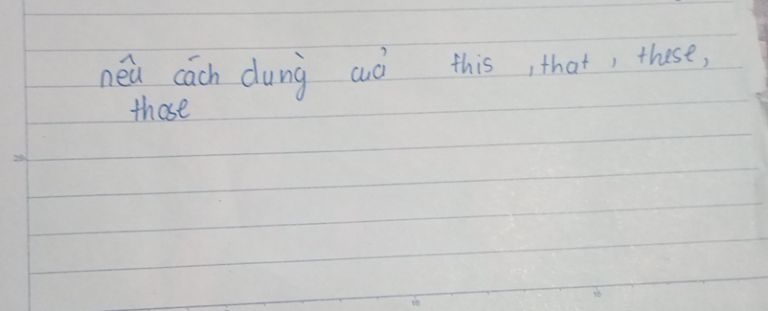 nêu cách dùng của this, that, these,
those